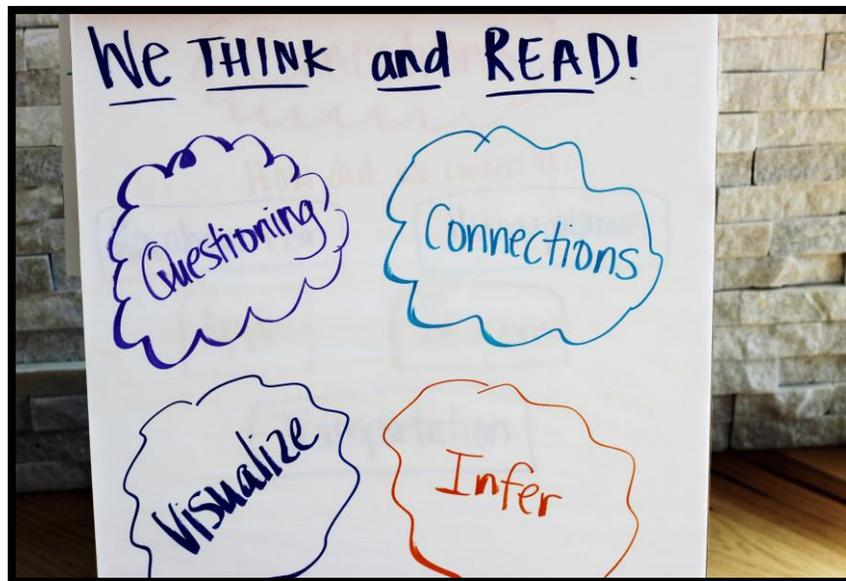 We THINK and READ!
Questioning
Connections
Visualize
Infer